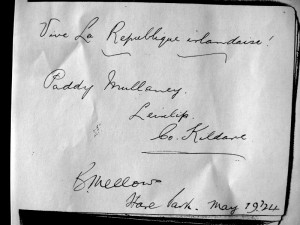 Vive La Republique irlandaise!
Paddy Mullaney.
Leixlip.
Co. Kildare
B. Mellows
Hare Park. May 1924